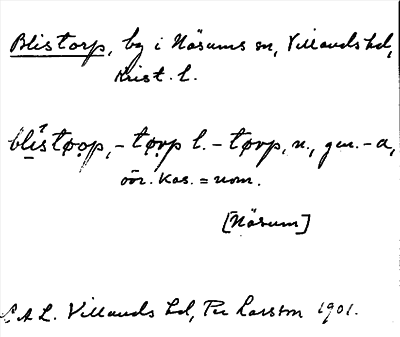 Blistorp, by i Näsums sn, Villands hd,
Krist. l.
blistọọp, - tọrp l. - tọrp, n., gen. - a,
öv. kas. = nom.
[Näsum]
C A L. Villands hd, Per Larsson 1901.